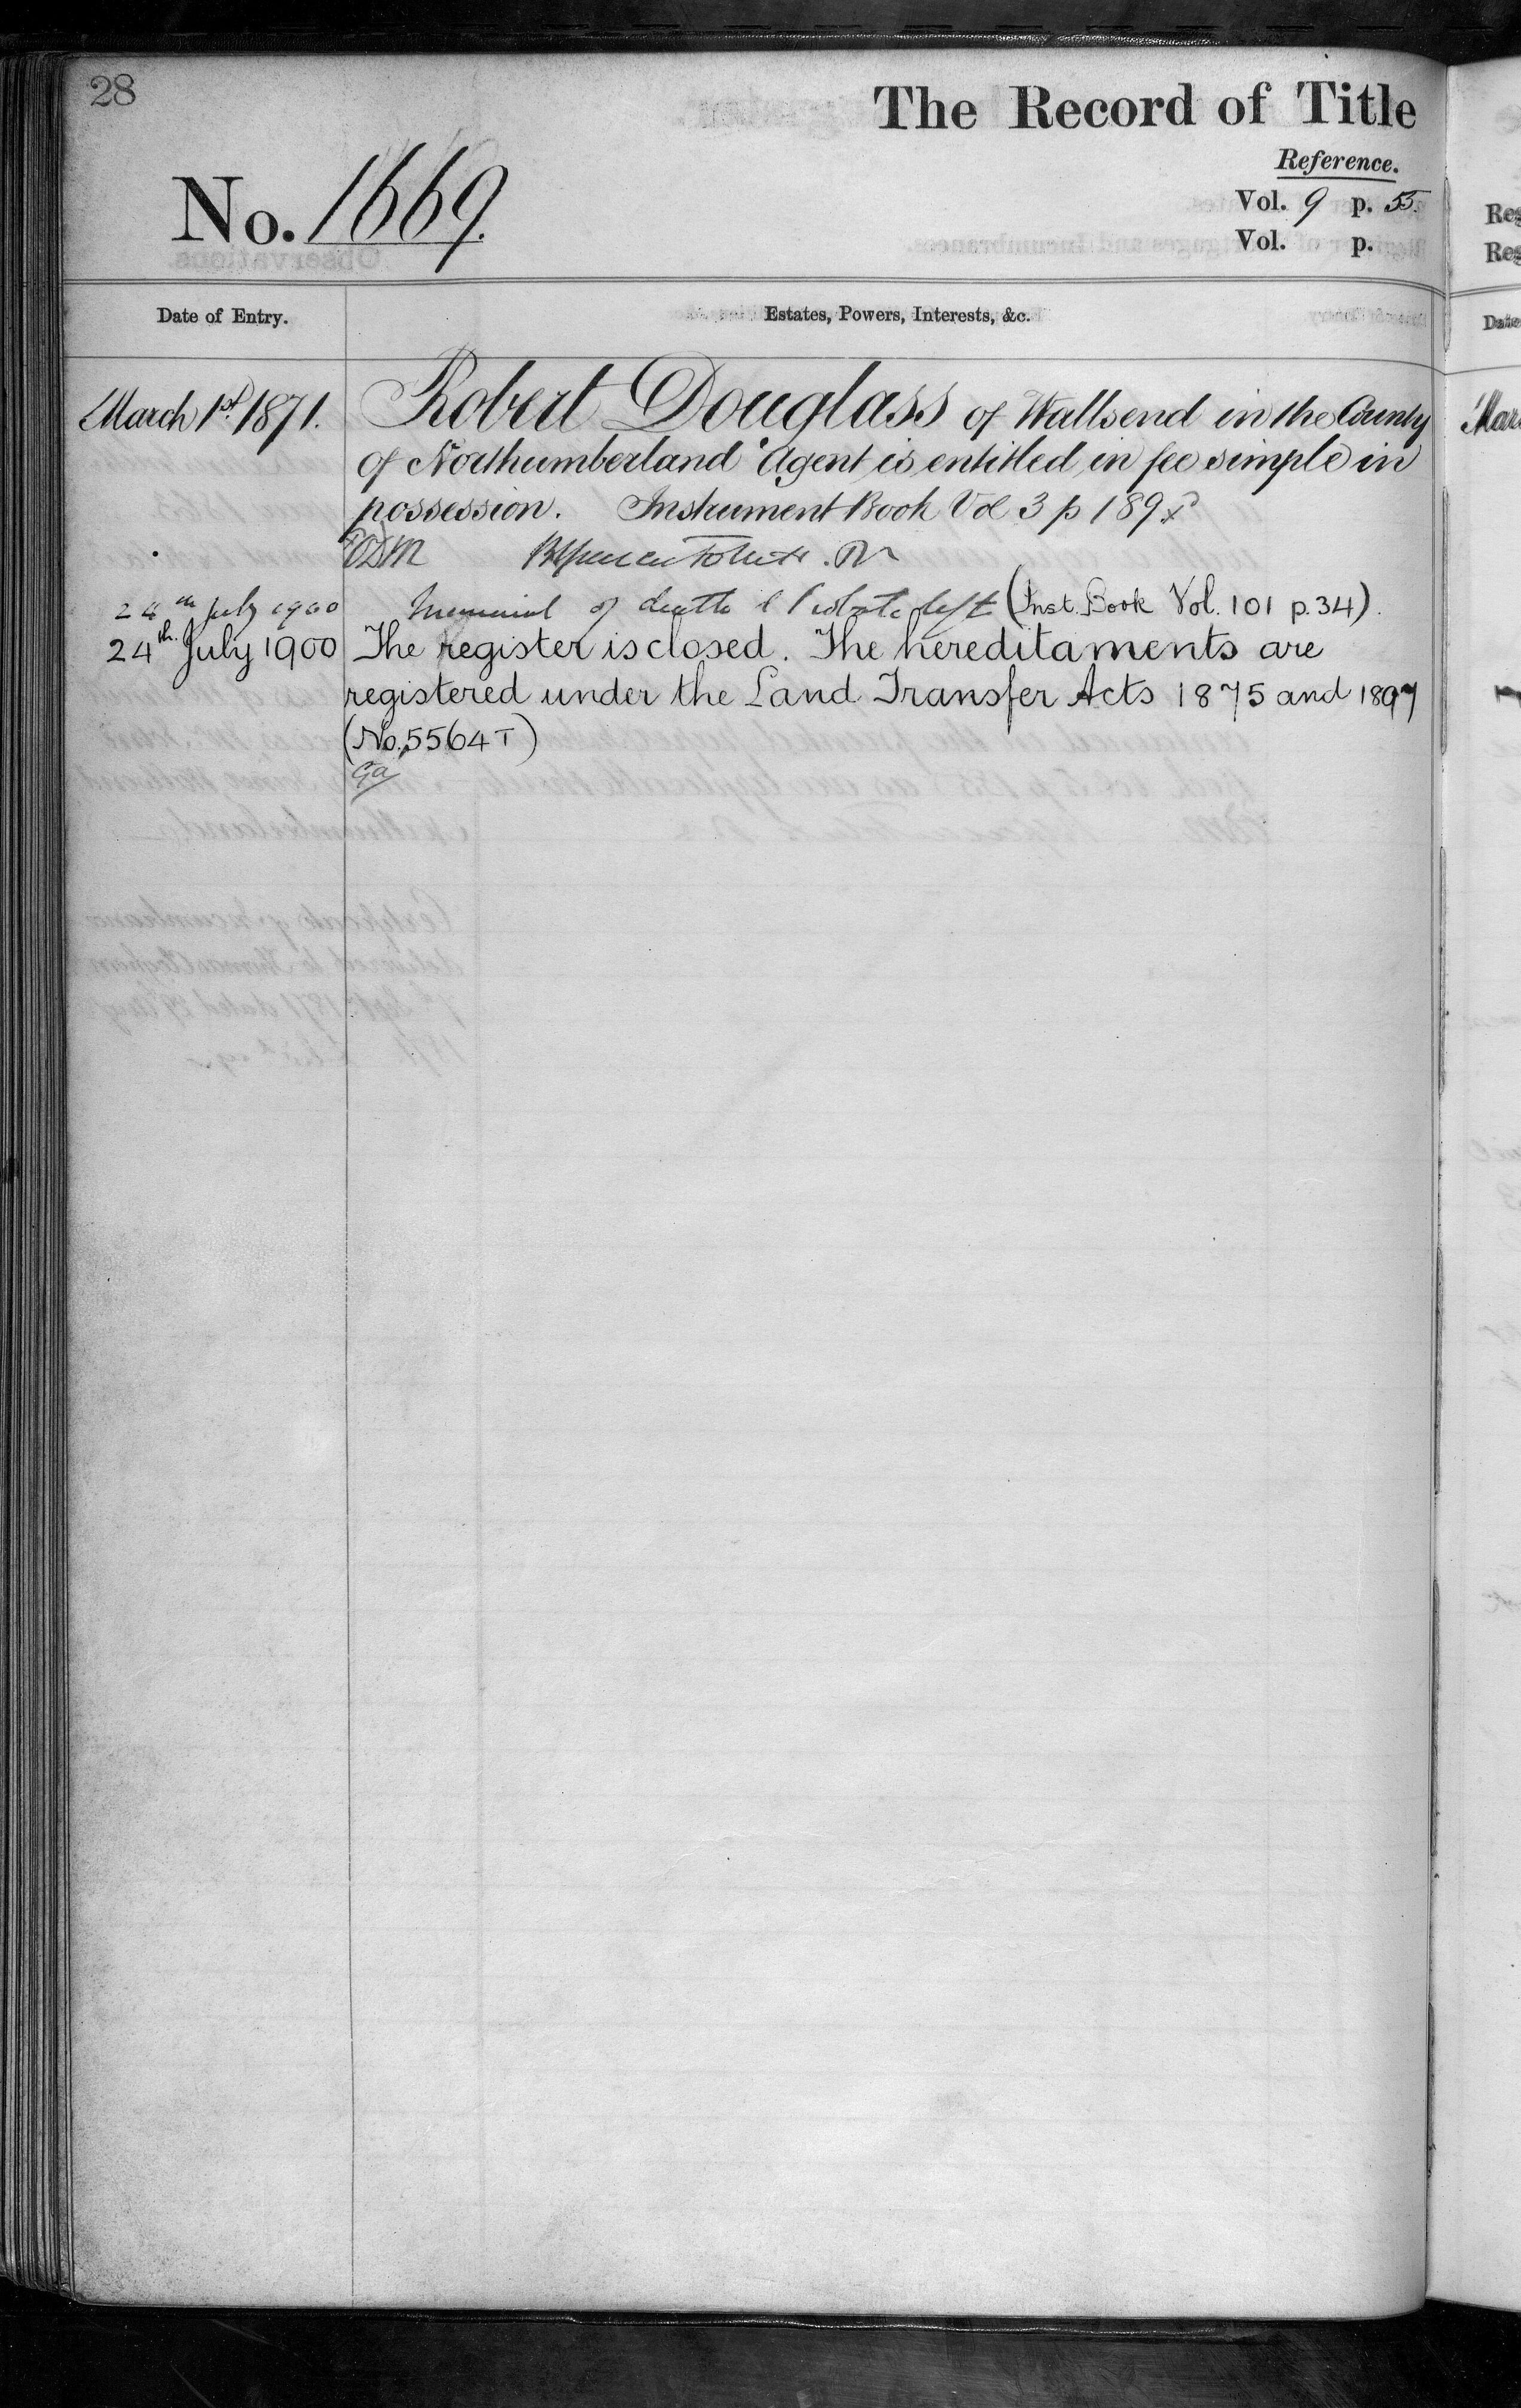 28
The Record of Title
Reference.
No. 1669.
Vol. 9 p. 55.
Vol. p.
Date of Entry.
Estates, Powers, Interests, &c.
March 1st. 1871.
Robert Douglass of Wallsend in the County
of Northumberland Agent is entitled in fee simple in
possession. Instrument Book Vol 3 p 189
24th July 1900 Memorial of death & Probate left (Inst. Book Vol. 101 p. 34).
24th. July 1900 The register is closed. The hereditaments are
registered under the Land Transfer Acts 1875 and 1897
(No. 5564 T)